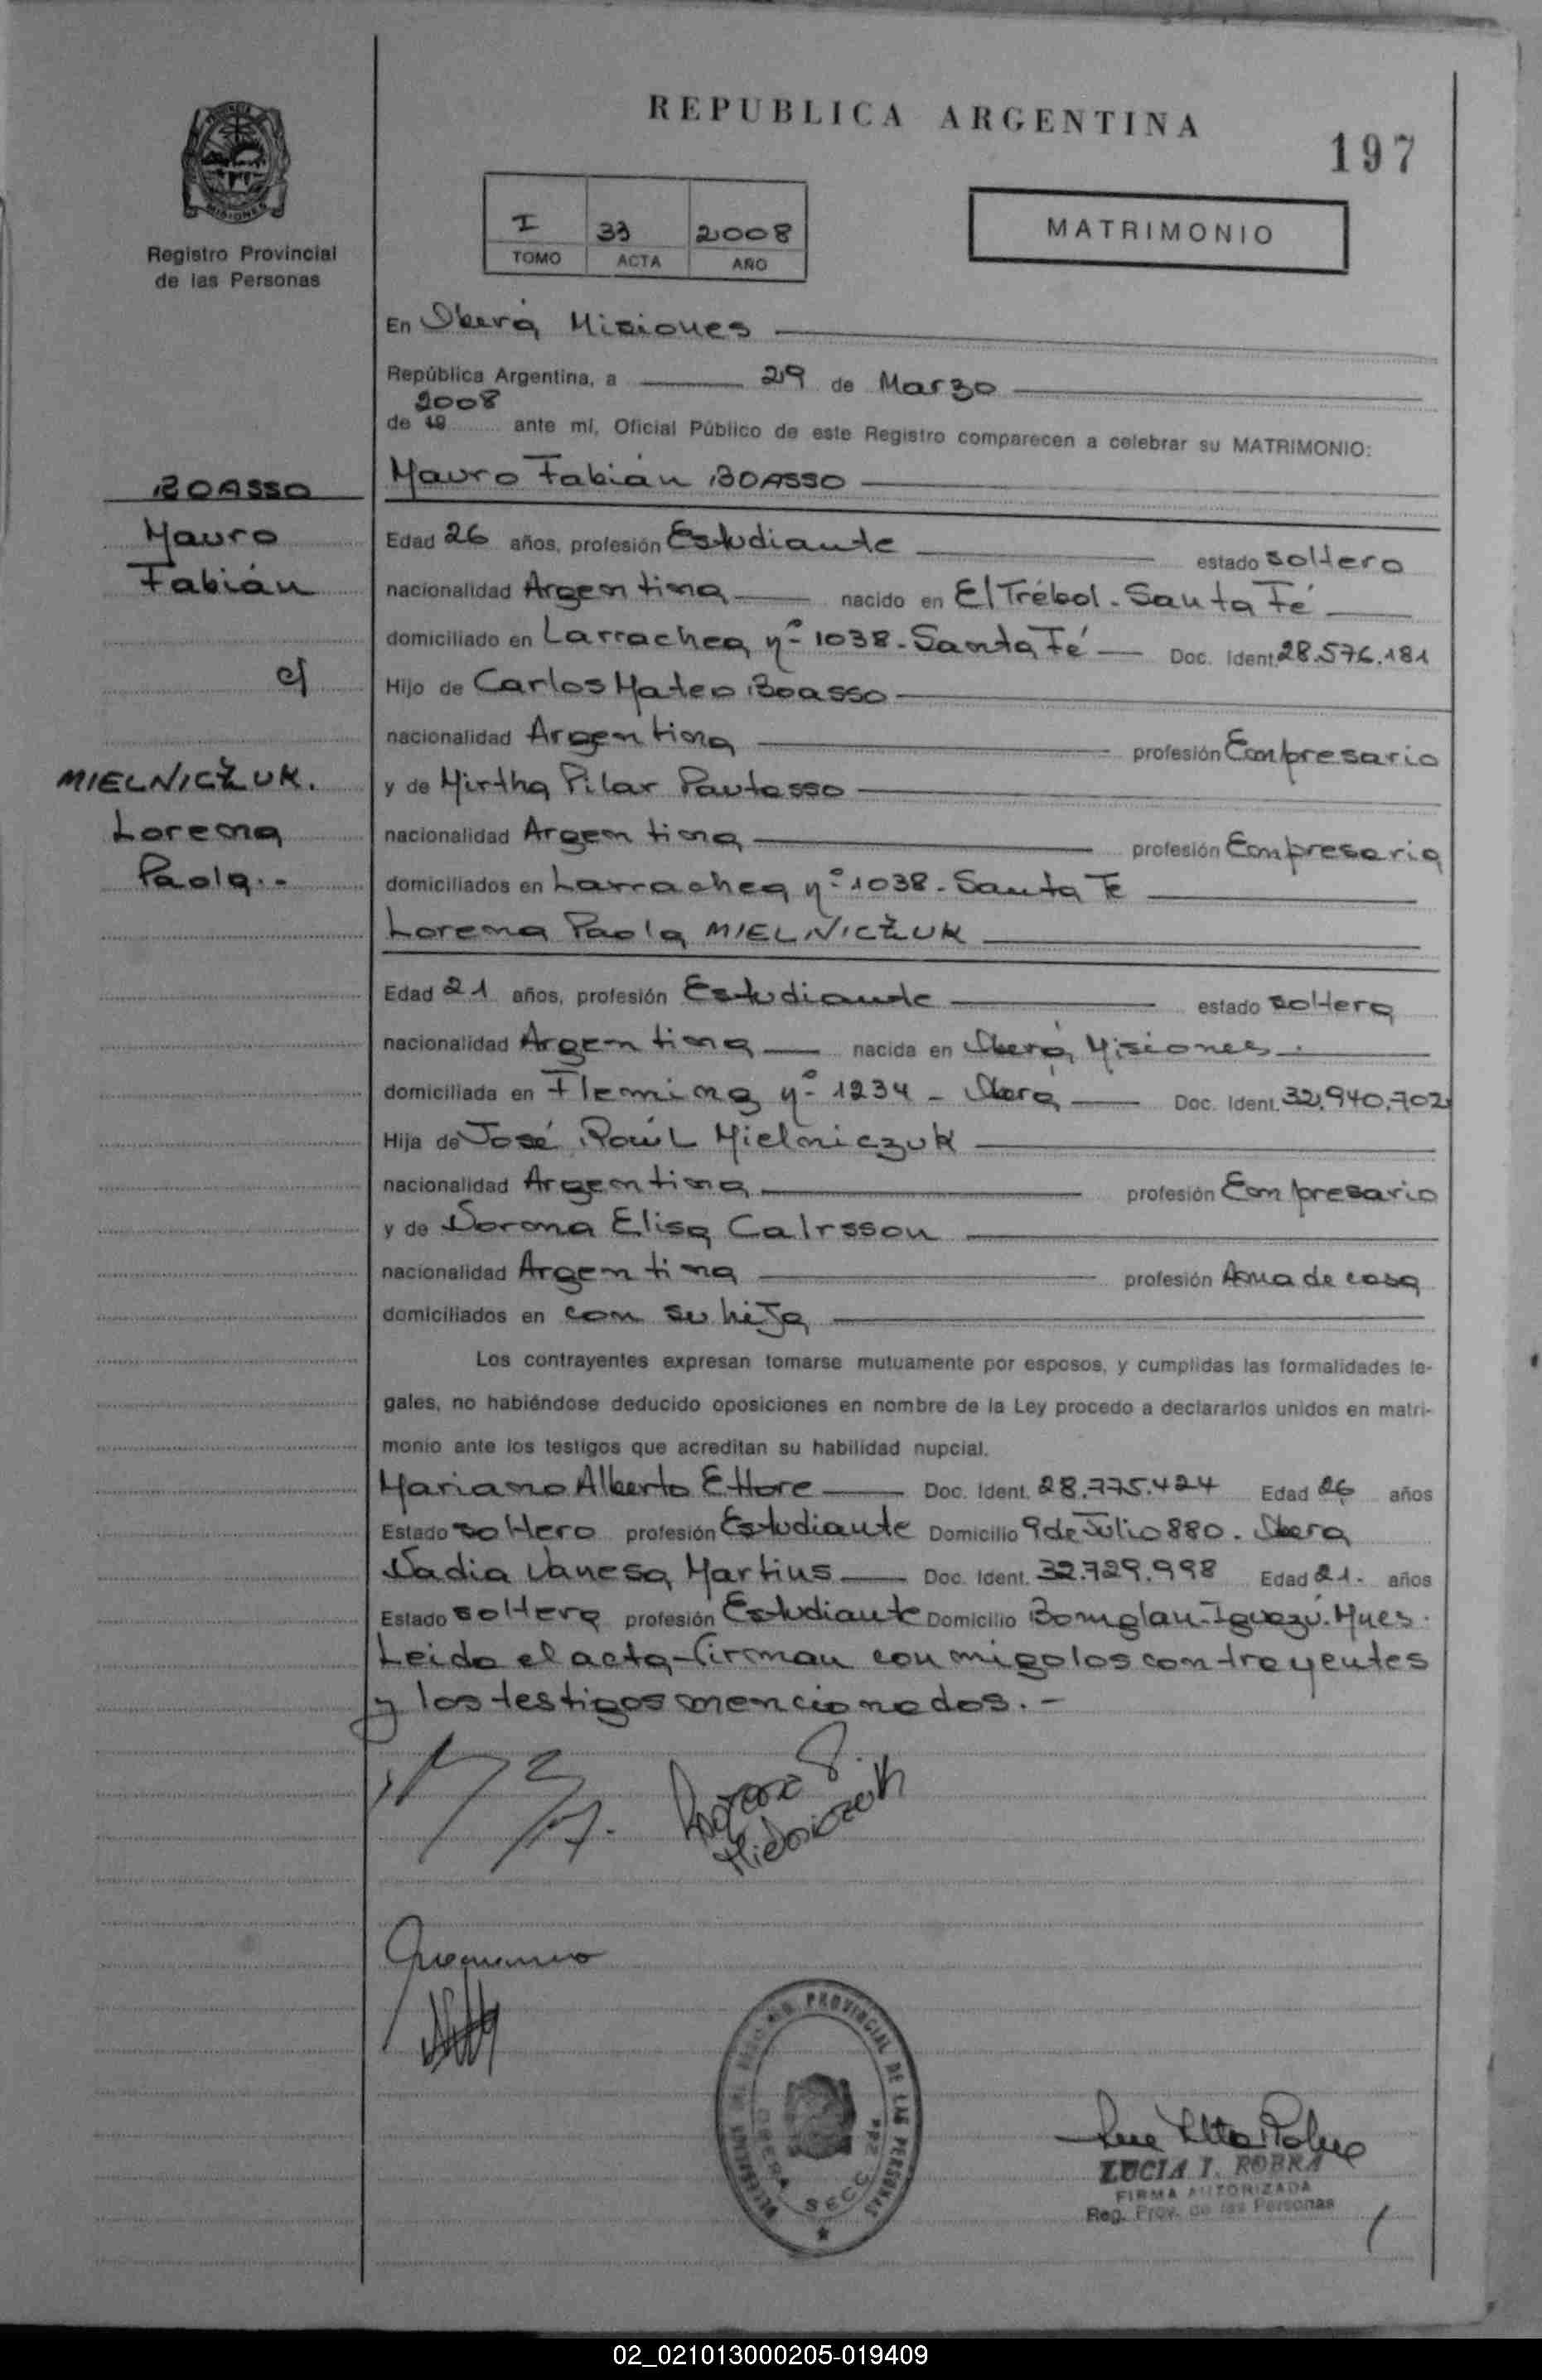 REPUBLICA ARGENTINA
197
MISIONES
Registro Provincial
de las Personas
I 33 2008
TOMO ACTA AÑO
MATRIMONIO
En Oberá, Misiones
República Argentina, a 29 de Marzo
2008
de 19 ante mí, Oficial Público de este Registro comparecen a celebrar su MATRIMONIO:
Mauro Fabián BOASSO
BOASSO
Mauro
Fabián
c/
MIELNICZUK.
Lorena
Paola.-
Edad 26 años, profesión Estudiante estado soltero
nacionalidad Argentina nacido en El Trébol - Santa Fé
domiciliado en Larrachea nº 1038 - Santa Fé Doc. Ident. 28.576.181
Hijo de Carlos Mateo Boasso
nacionalidad Argentina profesión Empresario
y de Mirtha Pilar Pautasso
nacionalidad Argentina profesión Empresaria
domiciliados en Larrachea nº 1038 - Santa Fe
Lorena Paola MIELNICZUK
Edad 21 años, profesión Estudiante estado soltera
nacionalidad Argentina nacida en Oberá, Misiones.
domiciliada en Fleming nº 1234 - Oberá Doc. Ident. 32.940.702
Hija de José Raúl Mielniczuk
nacionalidad Argentina profesión Empresario
y de Norma Elisa Calrsson
nacionalidad Argentina profesión Ama de casa
domiciliados en con su hija
Los contrayentes expresan tomarse mutuamente por esposos, y cumplidas las formalidades le-
gales, no habiéndose deducido oposiciones en nombre de la Ley procedo a declararlos unidos en matri-
monio ante los testigos que acreditan su habilidad nupcial.
Mariano Alberto Ettore Doc. Ident. 28.775.424 Edad 26 años
Estado soltero profesión Estudiante Domicilio 9 de Julio 880. Obera
Nadia Vanesa Martius Doc. Ident. 32.729.998 Edad 21. años
Estado soltera profesión Estudiante Domicilio Iguazú. Mnes.
Leida el acta firman conmigo los contrayentes
y los testigos mencionados.-
Lorena P.
Mielniczuk
PROVINCIAL DE LAS PERSONAS
OBERA SECC
LUCIA I. ROBRA
FIRMA AUTORIZADA
Reg. Prov. de las Personas
02_021013000205-019409